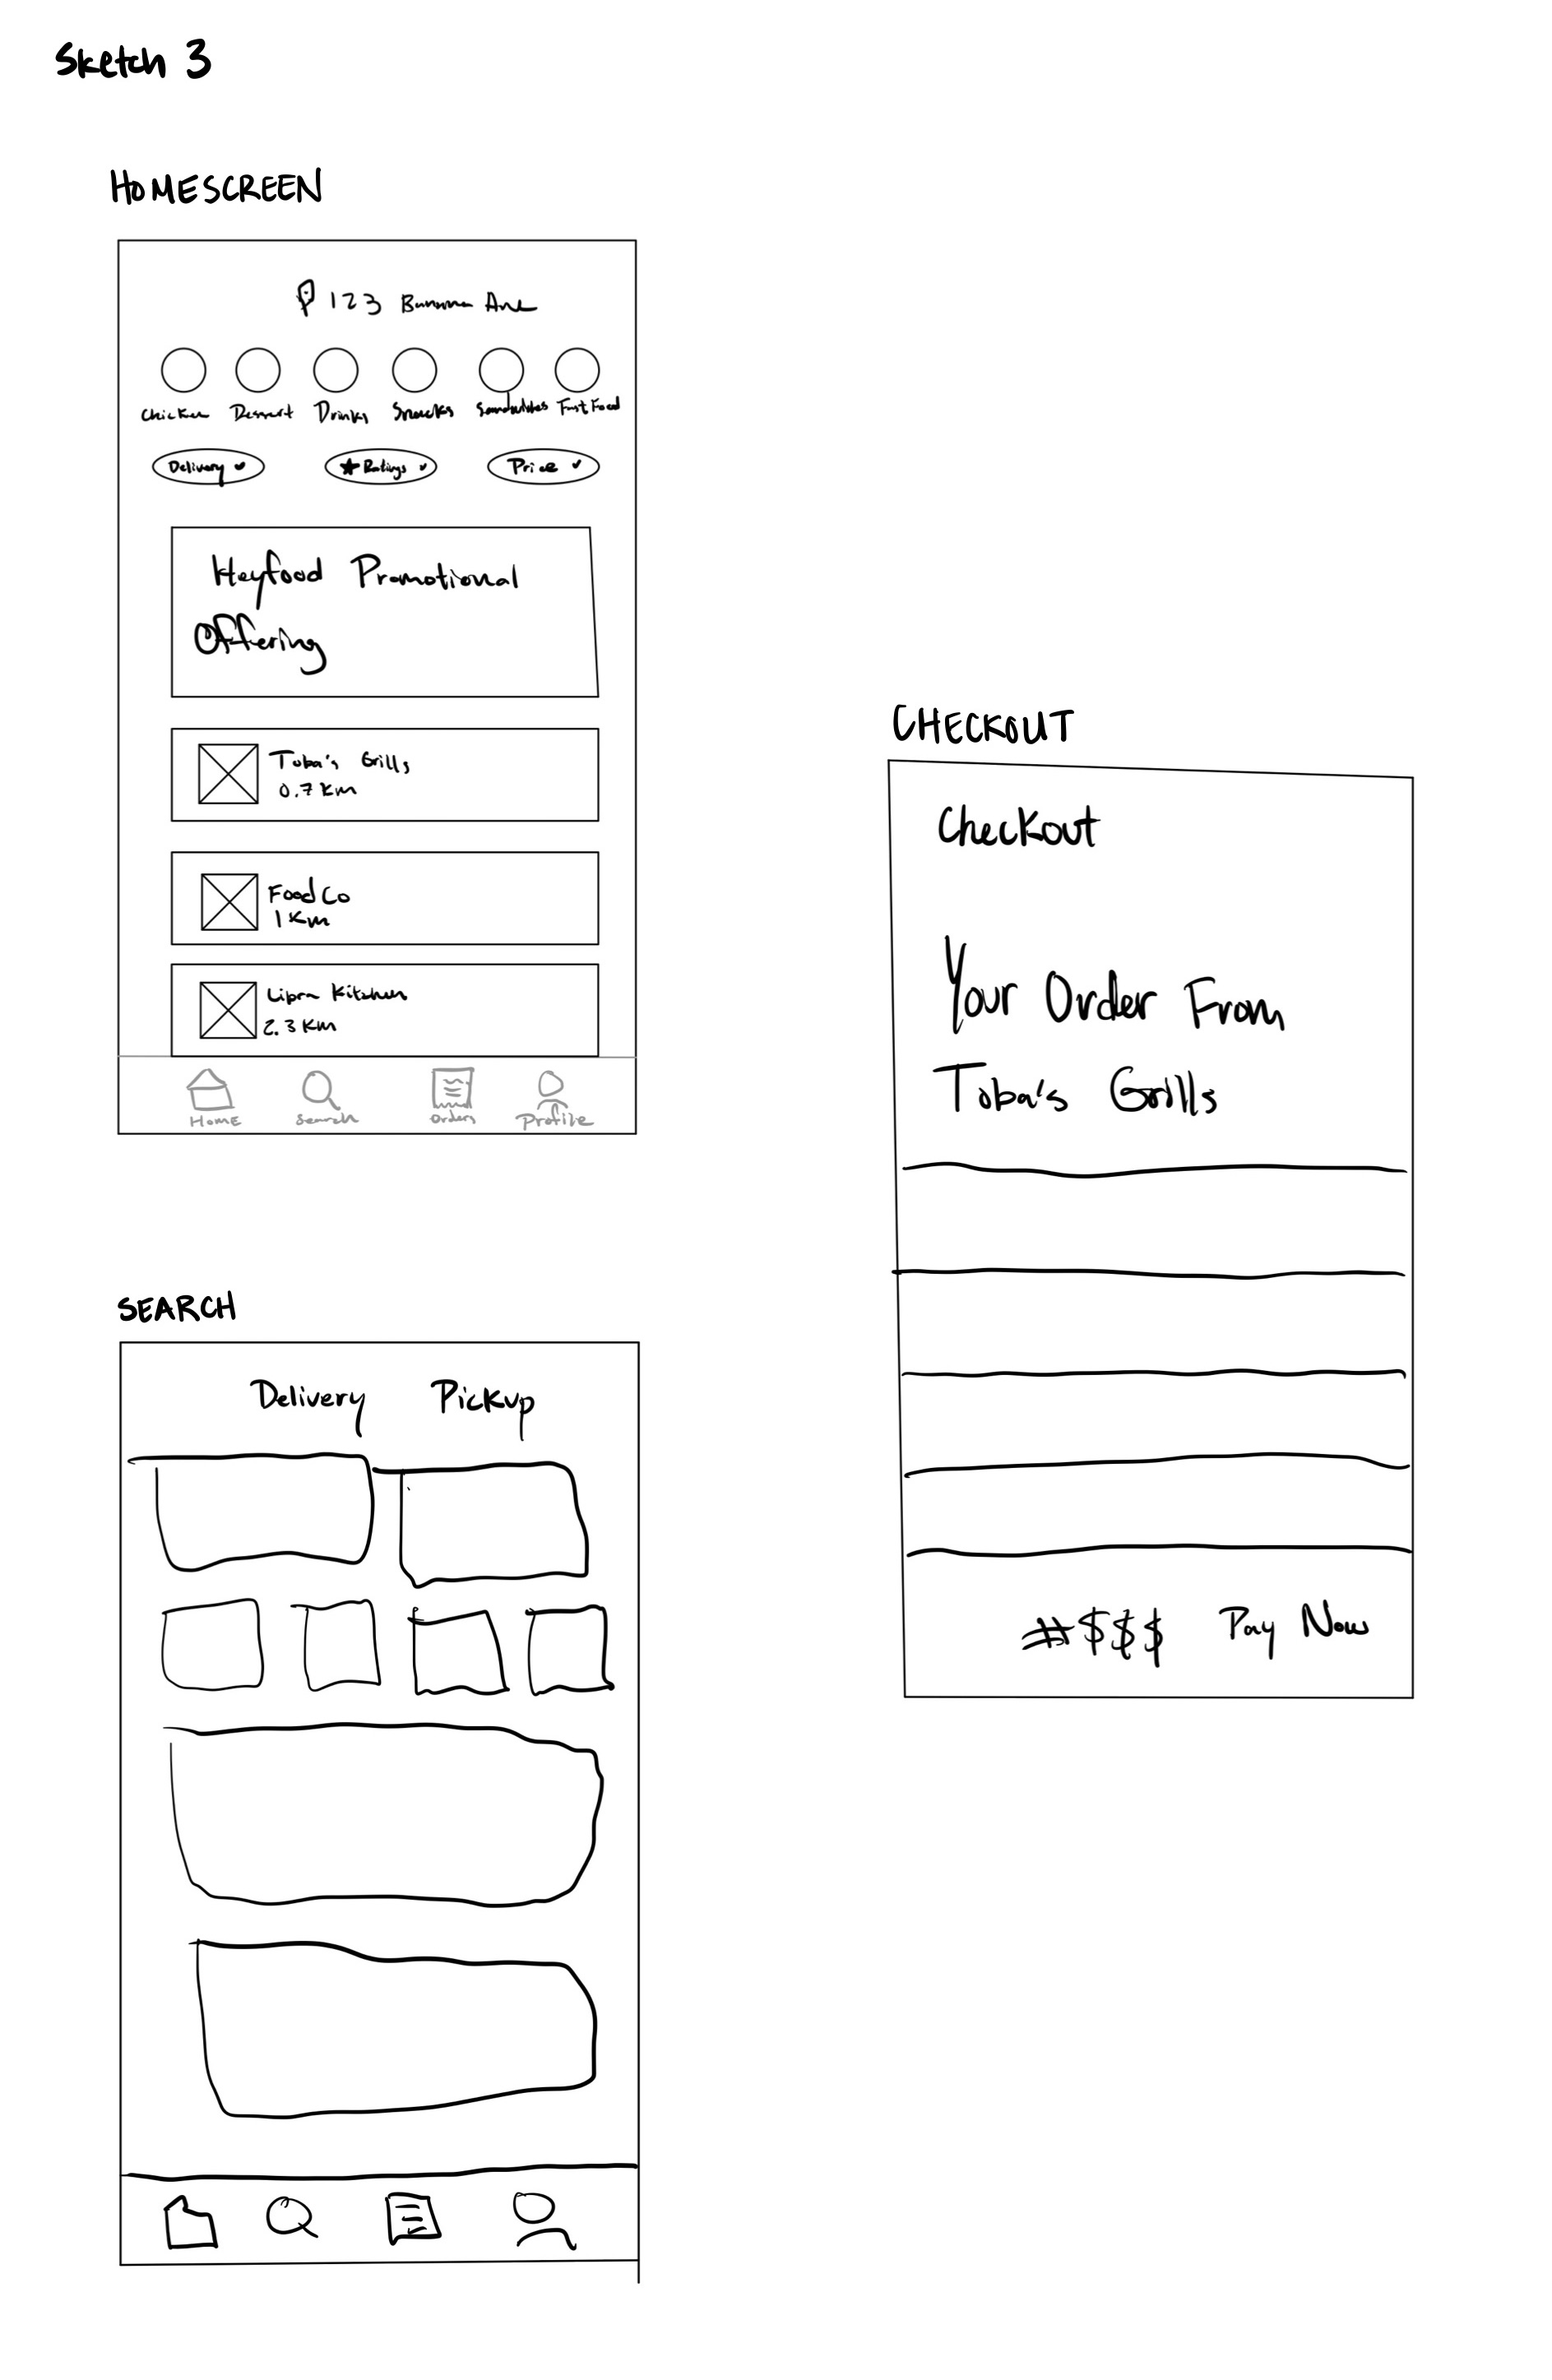 Sketch 3
HOMESCREEN
123 Banana Ave
Chicken Dessert Drinks Snacks Sandwiches Fast Food
Delivery Ratings Price
Heyfood Promotional
Offering
Toba's Grills
0.7 Km
Food Co
1 Km
Libra Kitchen
2.3 Km
Home Search Orders Profile
CHECKOUT
Checkout
Your Order From
Toba's Grills
#$$$ Pay Now
SEARCH
Delivery Pickup